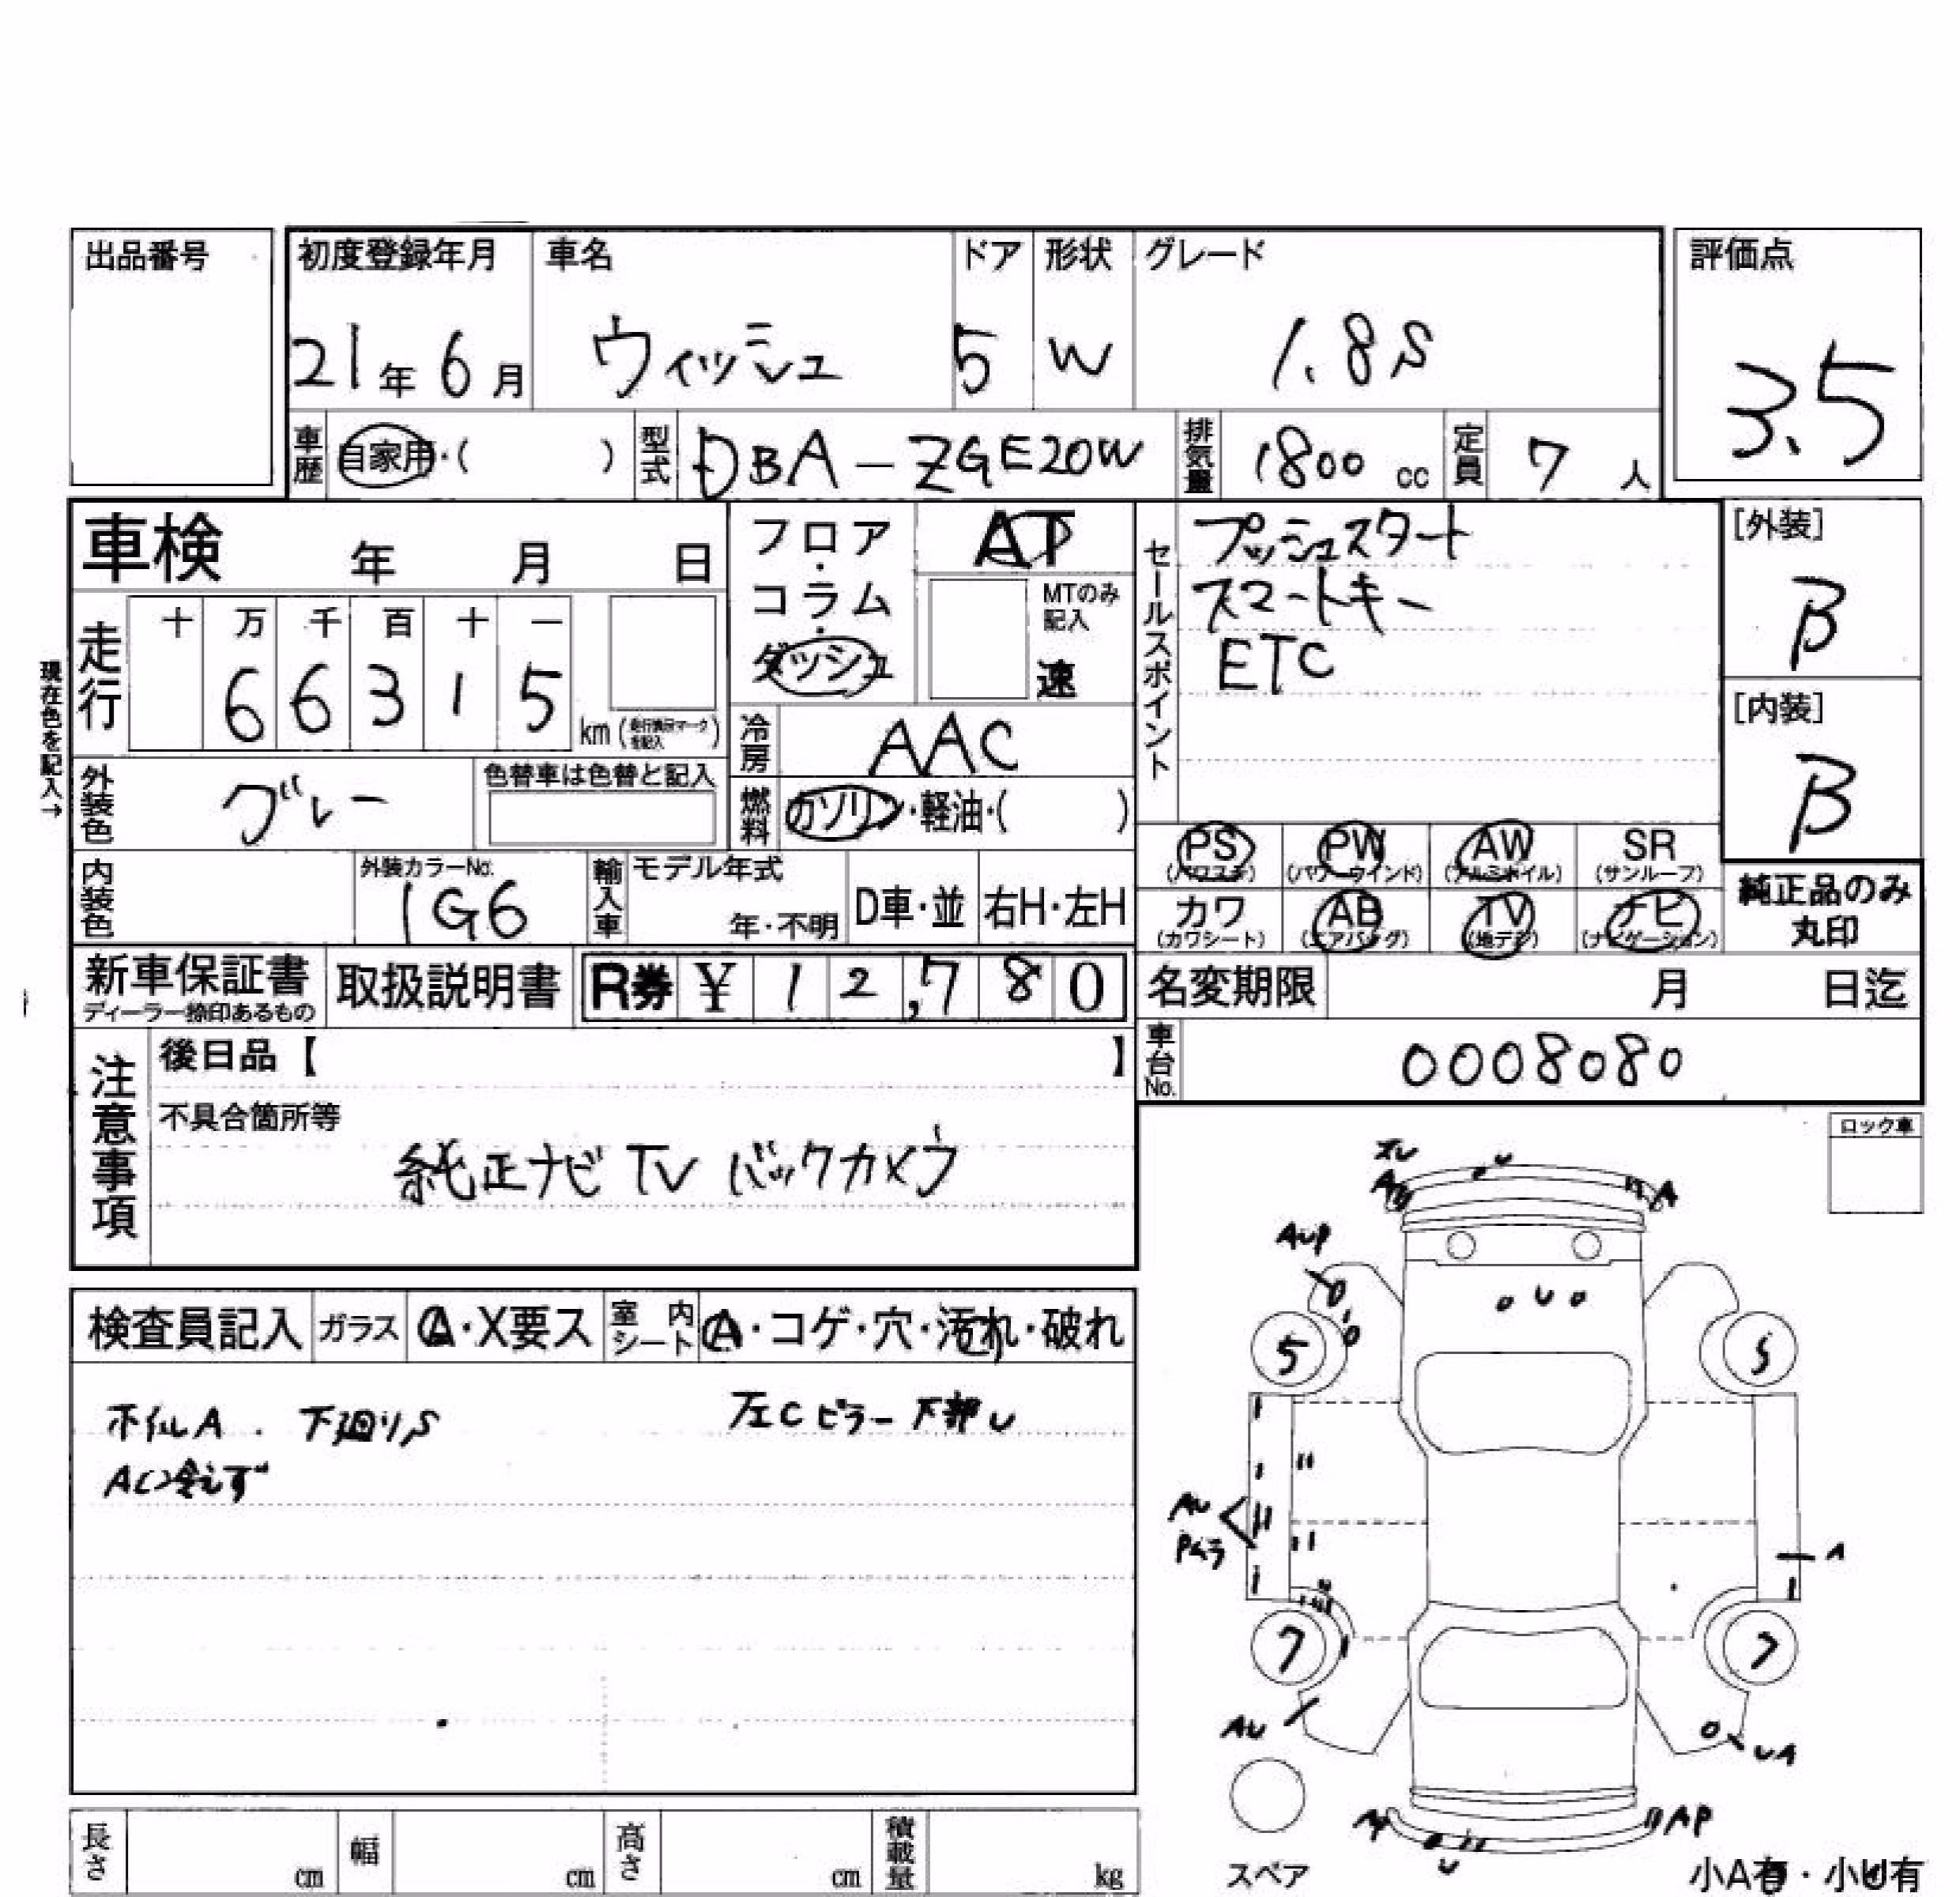 出品番号
初度登録年月 車名 ドア 形状 グレード
評価点
21年6月 ウィッシュ 5 W 1.8S
3.5
車歴 自家用・( ) 型式 DBA-ZGE20W 排気量 1800cc 定員 7人
車検 年 月 日
フロア・コラム・ダッシュ
AT
MTのみ記入
速
セールスポイント
プッシュスタート
スマートキー
ETC
[外装]
B
[内装]
B
現在色を記入→
走行 十 万 千 百 十 一
66315 km
冷房 AAC
外装色 グレー 色替車は色替と記入
燃料 ガソリン・軽油・( )
PS (パワステ) PW (パワーウインド) AW (アルミホイル) SR (サンルーフ)
カワ (カワシート) AB (エアバッグ) TV (地デジ) ナビ (ナビゲーション)
純正品のみ
丸印
内装色 外装カラーNo. 1G6 輸入車 モデル年式 年・不明 D車・並 右H・左H
新車保証書 ディーラー捺印あるもの 取扱説明書 R券 ¥12,780
名変期限 月 日迄
車台No. 0008080
注意事項
後日品【 】
不具合箇所等
純正ナビ TV バックカメラ
ロック車
検査員記入 ガラス A・X要ス 室内シート A・コゲ・穴・汚れ・破れ
ホイルA 下廻りS 左Cピラー下部U
AC冷えず
A
A
U
AUP
U
5
5
AU
Pムラ
A
7
7
AU
UA
AP
U
スペア
小A有・小U有
長さ cm 幅 cm 高さ cm 積載量 kg